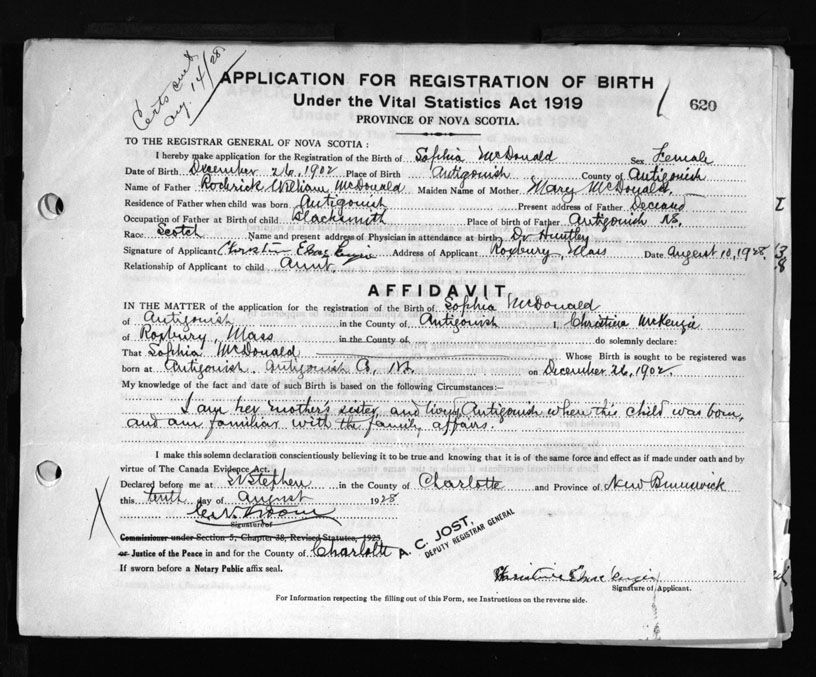 Certs
Aug. 14/28
APPLICATION FOR REGISTRATION OF BIRTH
Under the Vital Statistics Act 1919
PROVINCE OF NOVA SCOTIA.
620
TO THE REGISTRAR GENERAL OF NOVA SCOTIA :
I hereby make application for the Registration of the Birth of Sophia McDonald Sex Female
Date of Birth December 26, 1902 Place of Birth Antigonish County of Antigonish
Name of Father Roderick William McDonald Maiden Name of Mother Mary McDonald,
Residence of Father when child was born Antigonish Present address of Father
Occupation of Father at Birth of child Blacksmith Place of birth of Father Antigonish NS.
Race Scotch Name and present address of Physician in attendance at birth Dr Huntley
Signature of Applicant Address of Applicant Roxbury, Mass Date August 10, 1928.
Relationship of Applicant to child Aunt.
AFFIDAVIT
IN THE MATTER of the application for the registration of the Birth of Sophia McDonald
of Antigonish in the County of Antigonish I, Christina McKenzie
of Roxbury, Mass in the County of do solemnly declare:
That Sophia McDonald Whose Birth is sought to be registered was
born at Antigonish, Antigonish Co, NS. on December 26, 1902.
My knowledge of the fact and date of such Birth is based on the following Circumstances:—
I am her mother's sister and lived Antigonish when this child was born,
and am familiar with the family affairs.
I make this solemn declaration conscientiously believing it to be true and knowing that it is of the same force and effect as if made under oath and by
virtue of The Canada Evidence Act.
Declared before me at St Stephen in the County of Charlotte and Province of New Brunswick
this tenth day of August 1928
Signature of
Commissioner under Section 5, Chapter 38, Revised Statutes, 1923
or Justice of the Peace in and for the County of Charlotte
A. C. JOST,
DEPUTY REGISTRAR GENERAL
If sworn before a Notary Public affix seal.
Signature of Applicant.
For Information respecting the filling out of this Form, see Instructions on the reverse side.